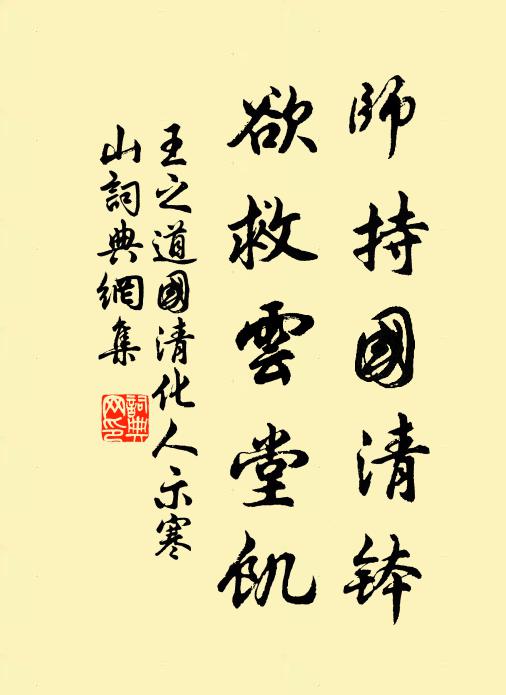 師持國清鉢
欲救雲堂飢
王之道國清化人示寒
山詞典網集
詞典
网印